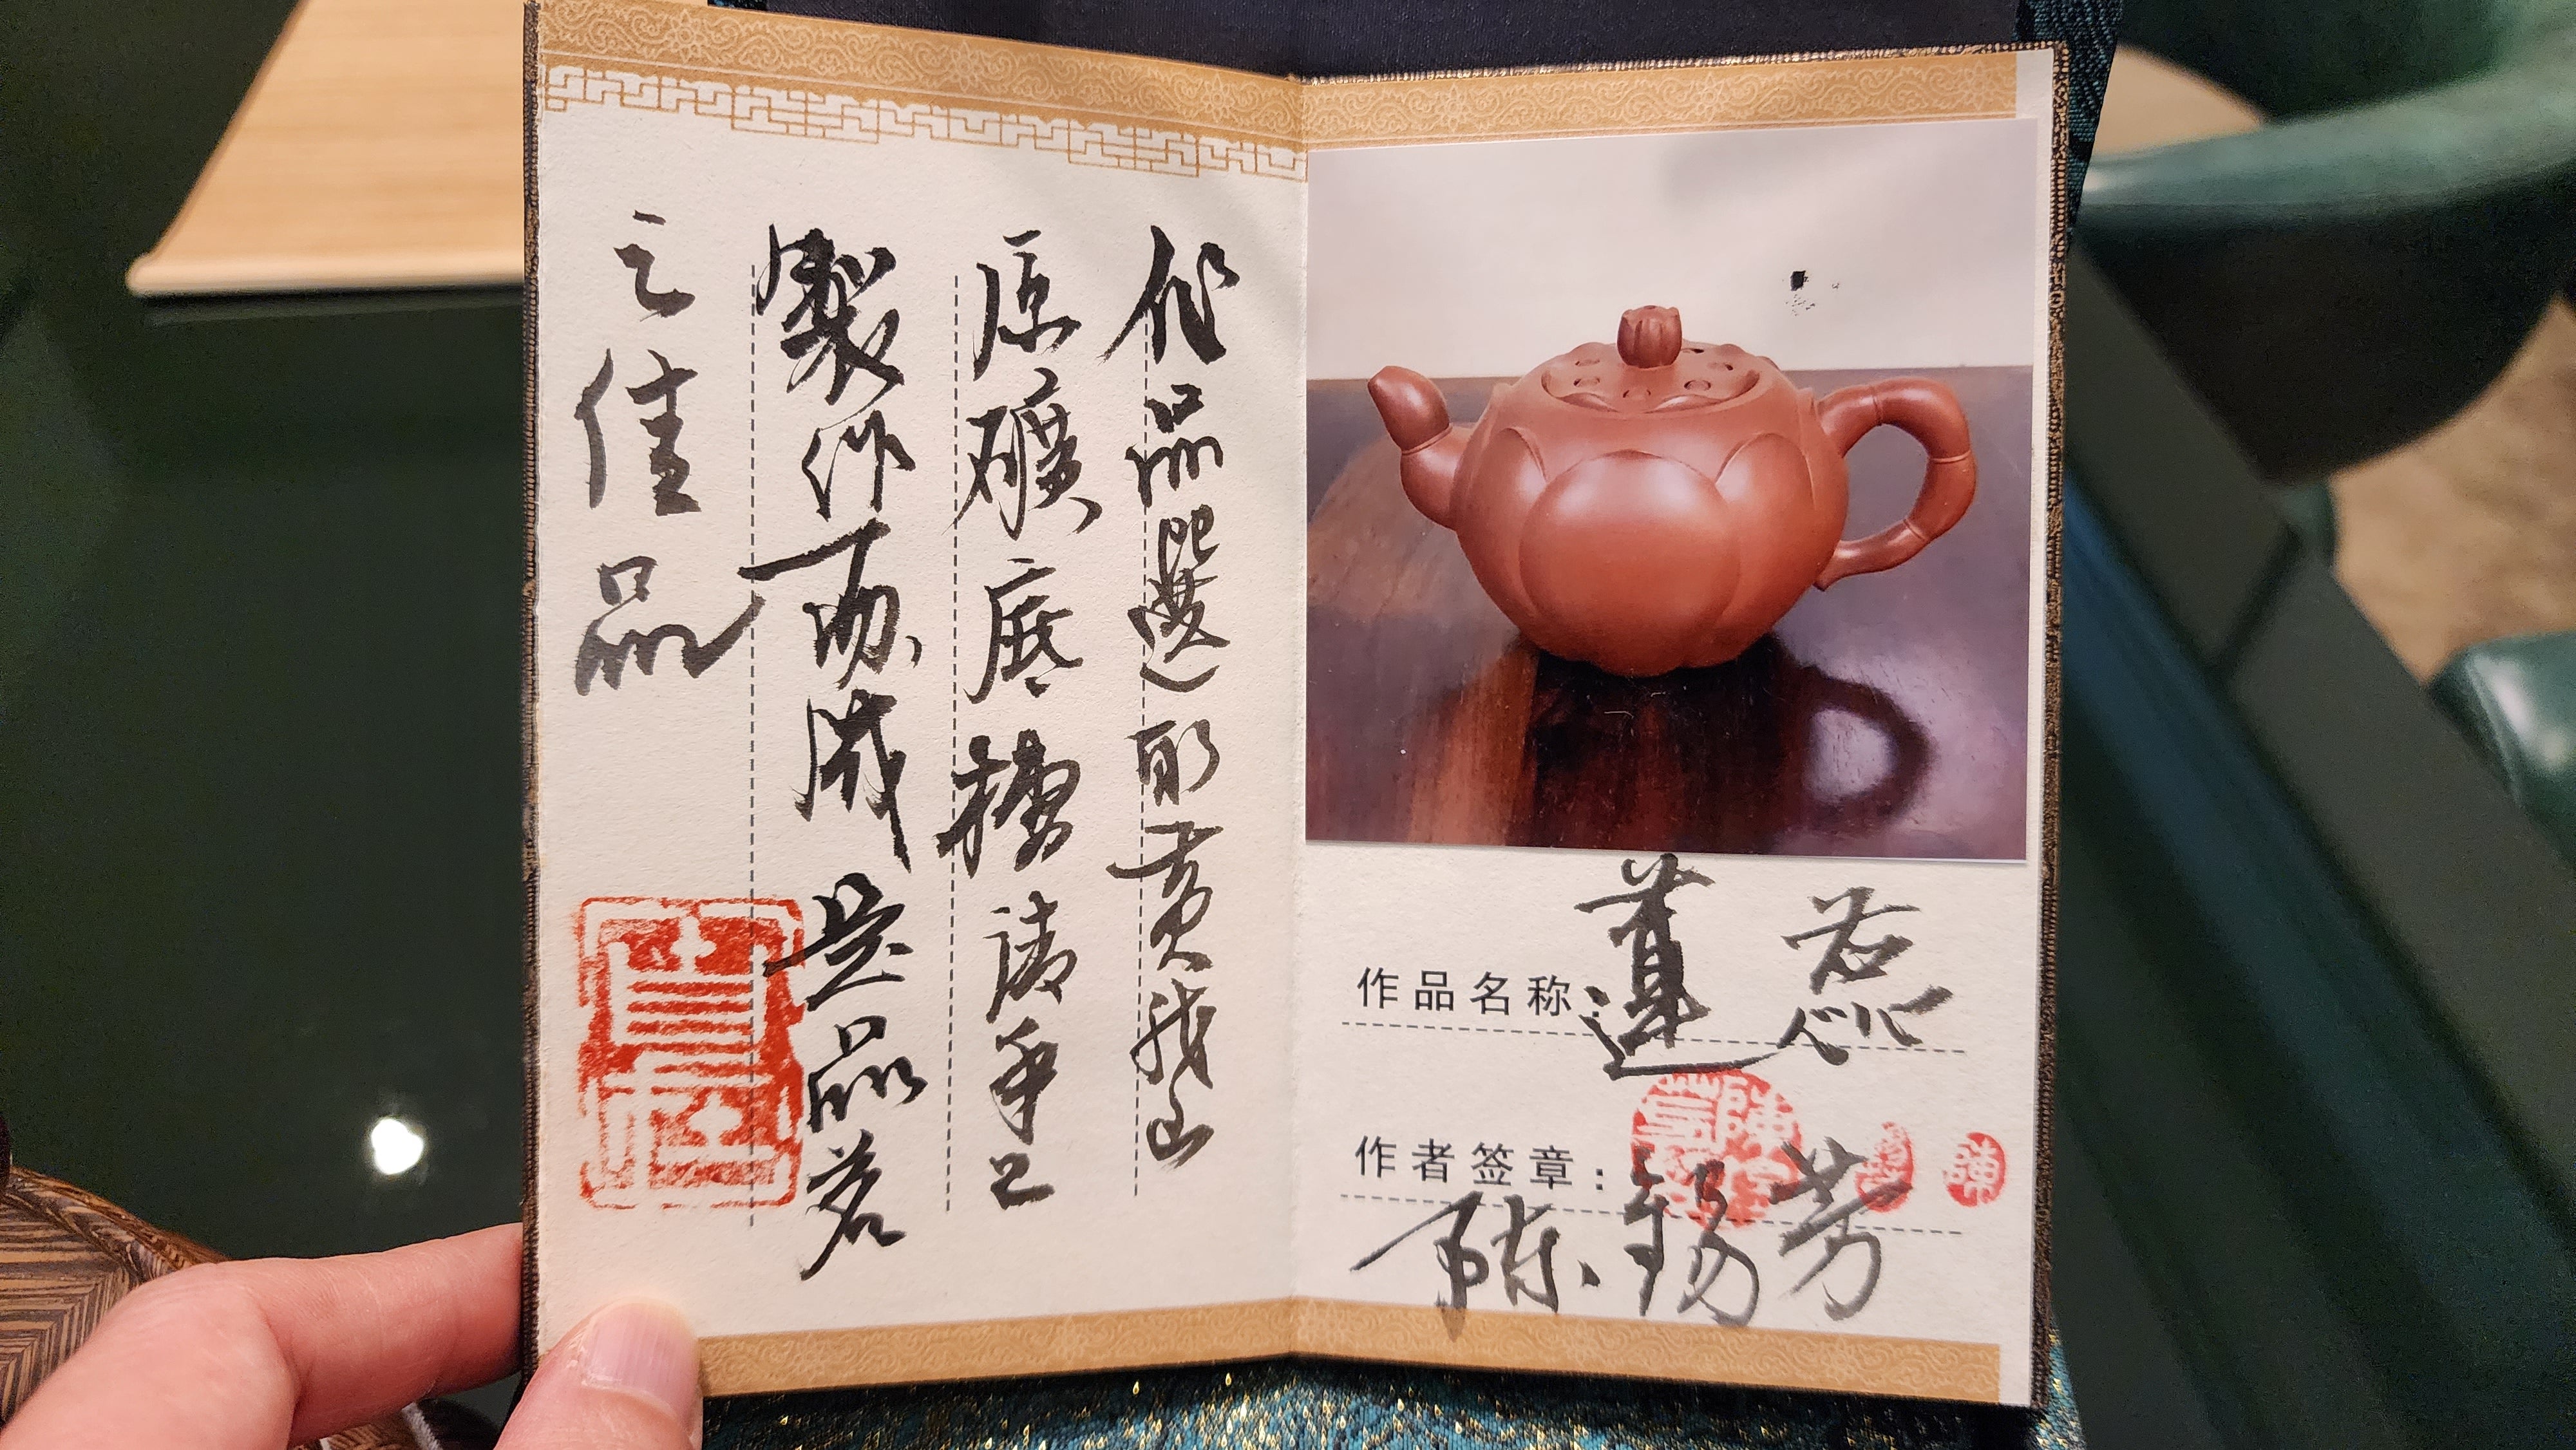 作品名称：蓮蕊
作者签章：
陈锡芳
作品選取黄龙山
原礦底槽清手工
製作而成是品茗
之佳品